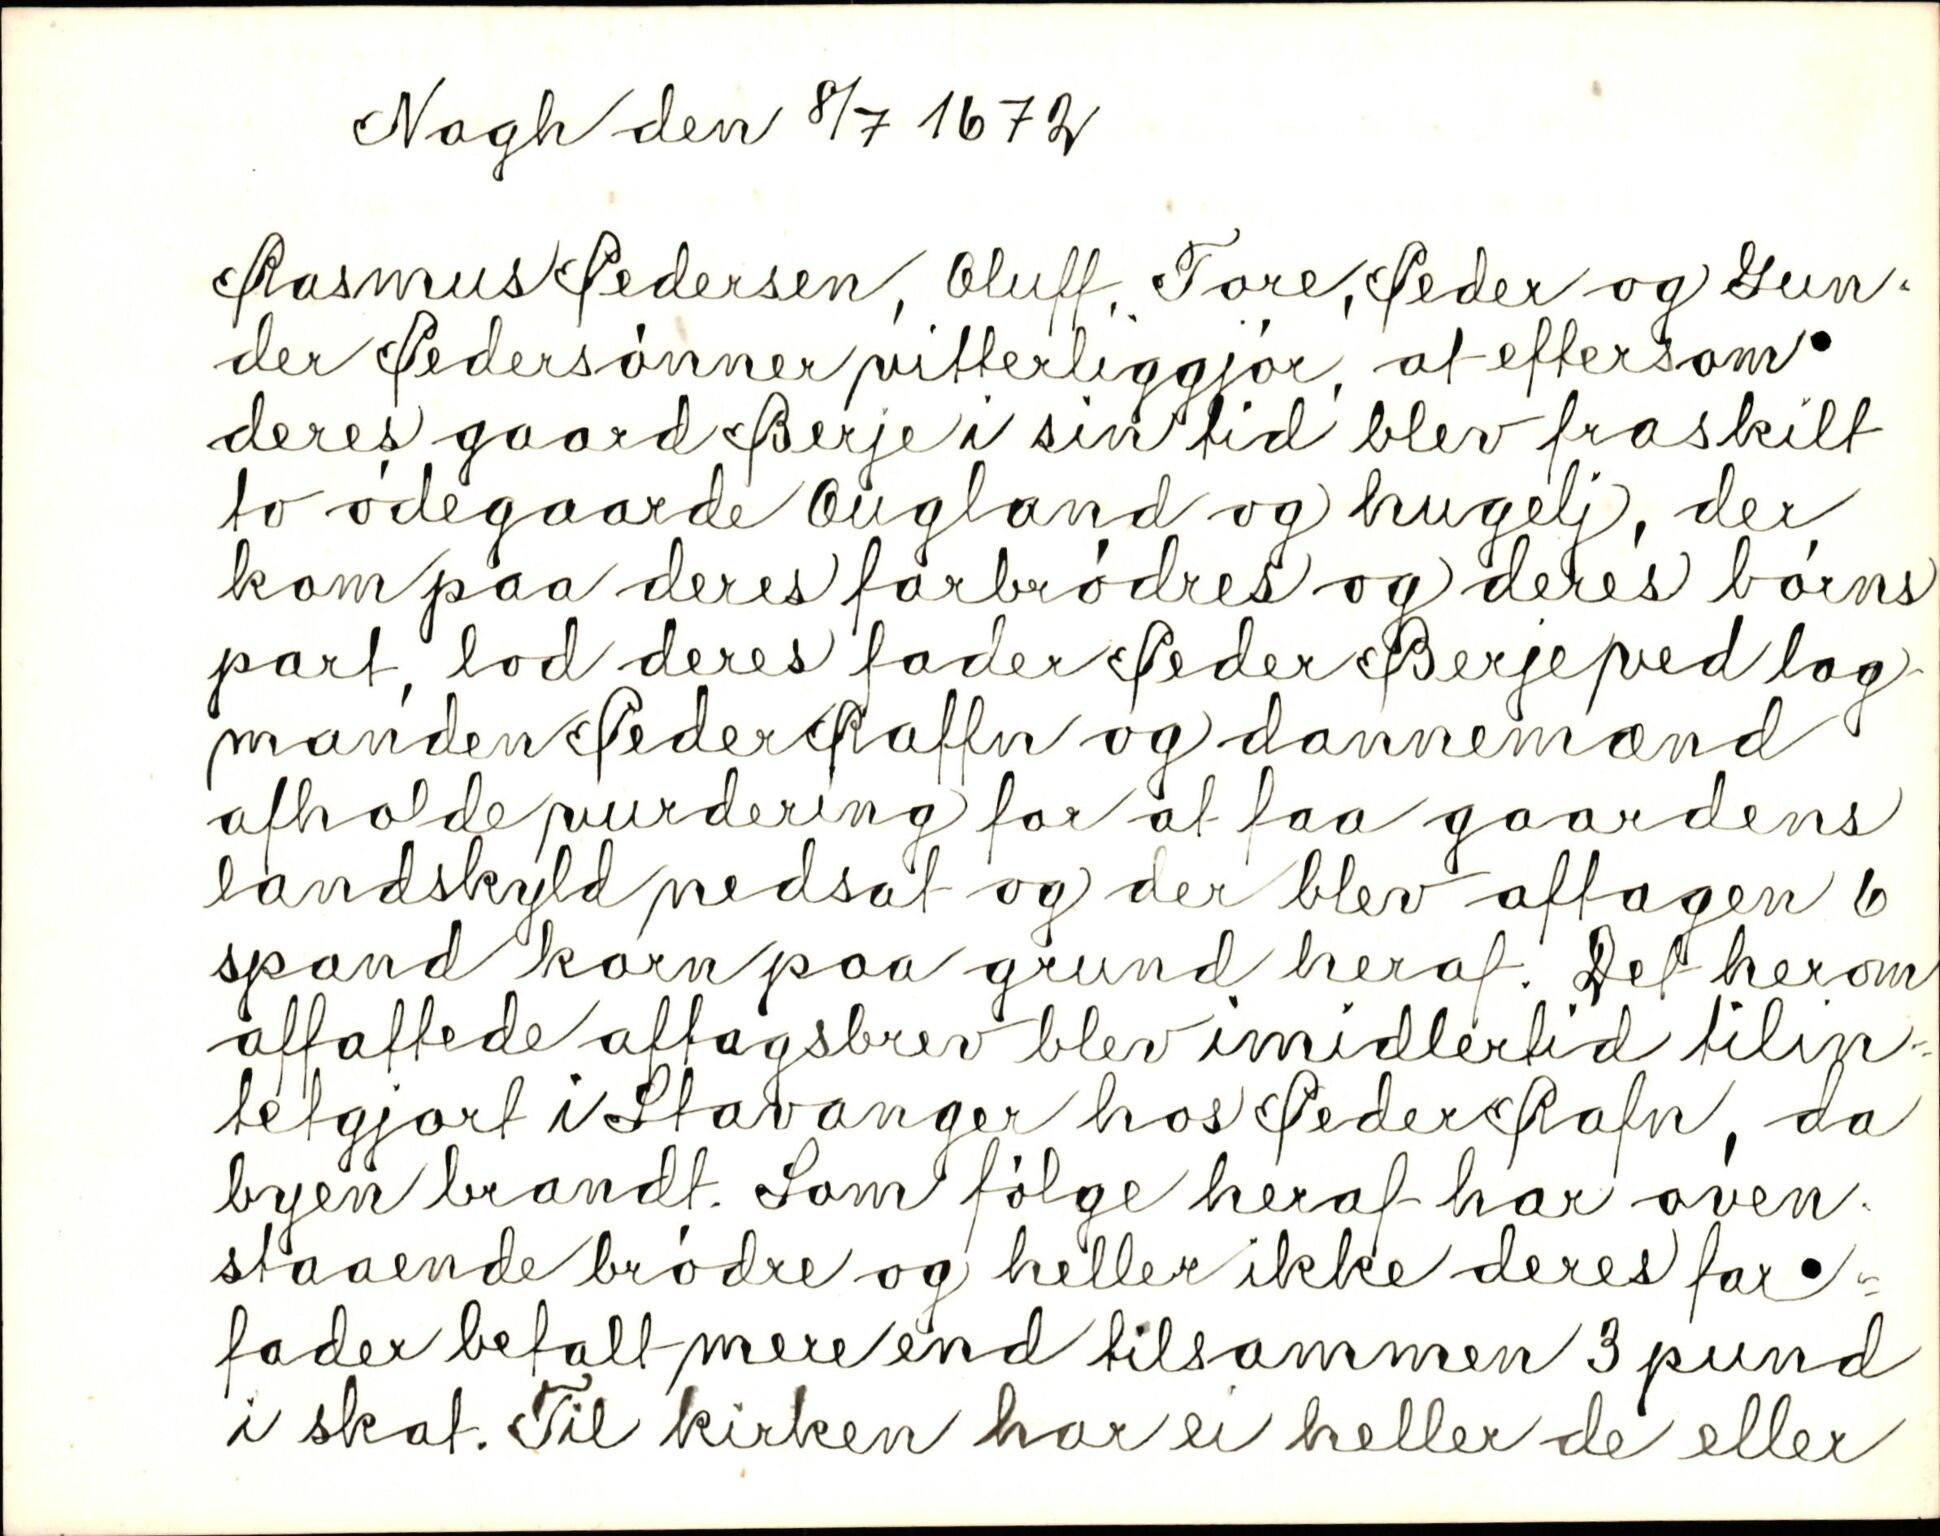 Nagh den 8/7 1672
Rasmus Pedersen, Oluff, Tore, Peder og Gun-
der Pedersónner vitterliggjór, at eftersom
deres gaard Berje i sin tid blev fraskilt
to ódegaarde Ougland og hugelj, der
kom paa deres farbródres og deres bórns
part, lod deres fader Peder Berje ved lag-
manden Peder Raffn og dannemænd
afholde vurdering for at faa gaardens
landskyld nedsat og der blev aftagen 6
spand korn paa grund heraf. Det herom
affattede aftagsbrev blev imidlertid tilin-
tetgjort i Stavanger hos Peder Rafn, da
byen brandt. Som fólge heraf har oven-
staaende bródre og heller ikke deres far-
fader betalt mere end tilsammen 3 pund
i skat. Til kirken har ei heller de eller